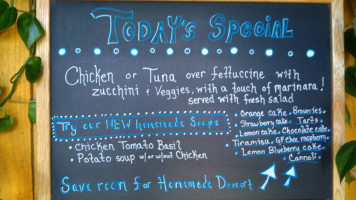 TODAY'S SPECIAL
Chicken or Tuna over fettuccine with
zucchini & Veggies, with a touch of marinara!
served with fresh salad
Try our NEW homemade Soups!
• Chicken Tomato Basil
• Potato soup w/ or w/out Chicken
• Orange cake • Brownies •
Strawberry cake • Tarts •
Lemon cake • Chocolate cake •
Tiramisu • GF choc raspberry •
Lemon Blueberry cake •
• Cannoli •
Save room for Homemade Dessert